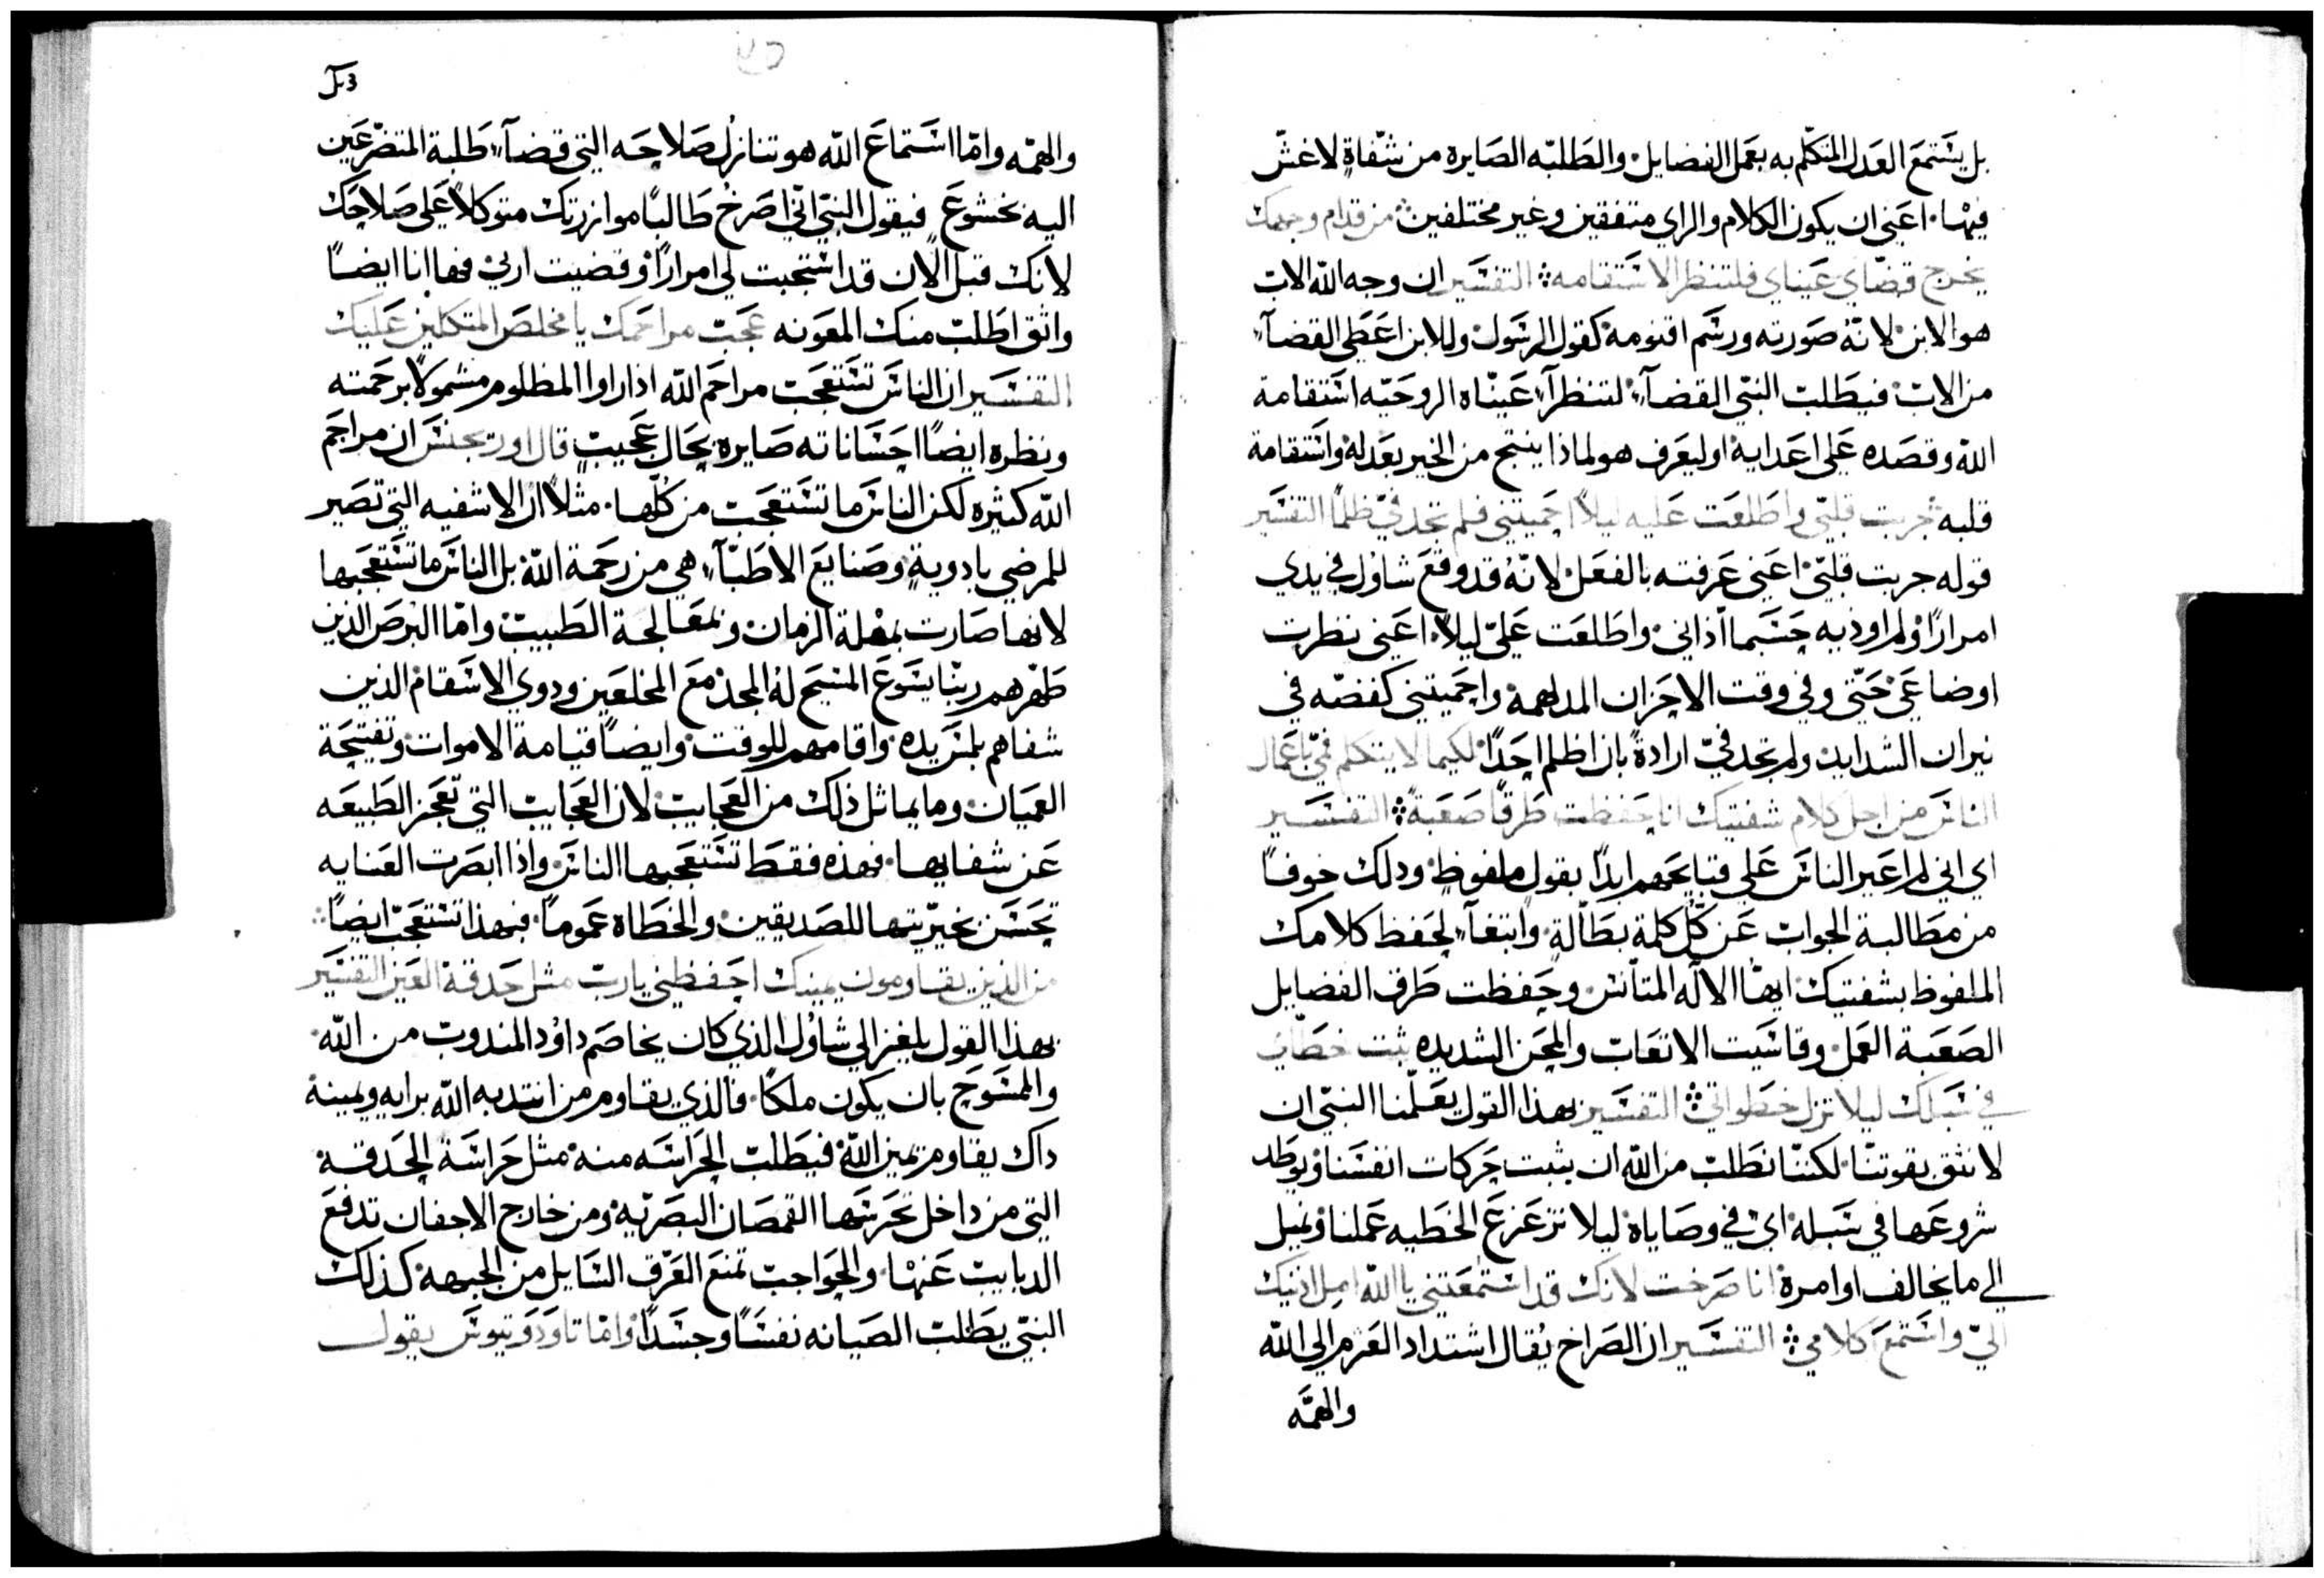 بل يستمع العدل المتكلم به بعمل الفضايل والطلبه الصايرة من شفاةٍ لا غش
فيها. اعني ان يكون الكلام والراي متفقين وغير مختلفين من قدام وجهك
يخرج قضاي عيناي فلتنظر الاستقامه التفسير ان وجه الله الاب
هو الابن لانه صورته ورسم اقنومه كقول الرسول وللابن اعطي القضآء
من الاب فيطلب النبي القضآء لتنظرآ عيناه الروحيه استقامة
الله وقصده علي اعدايه او ليعرف هو لماذا ينتج من الخير بعدله واستقامة
قلبه جربت قلبي واطلعت عليه ليلاً احميتني فلم تجد فيّ ظلماً التفسير
قوله جربت قلبي اعني عرفته بالفعل لانه قد وقع شاول في يدي
امراراً ولم اوذيه حسبما آذاني واطلعت عليّ ليلاً اعني نظرت
اوضاعي حتي وفي وقت الاحزان المدلهمة واحميتني كفضه في
نيران الشدايد ولم تجد فيّ ارادةً بان اظلم احداً لكيما لا يتكلم فمي باعمال
الناس من اجل كلام شفتيك انا حفظت طرقاً صعبة التفسير
اي اني لم اعير الناس علي قبايحهم ابداً بقول ملفوظ ودلك خوفاً
من مطالبة الجواب عن كل كلمة بطالة وابتغآء لحفظ كلامك
الملفوظ بشفتيك ايها الاله المتانس وحفظت طرق الفضايل
الصعبة العمل وقاسيت الاتعاب والمحن الشديده ثبت خطاي
في سبلك ليلا تزل خطواتي التفسير بهذا القول يعلمنا النبي ان
لا نثق بقوتنا لكننا نطلب من الله ان يثبت حركات انفسنا ويوطد
شروعها في سبله اي في وصاياه ليلا تزعزع الخطيه عملنا ونميل
الي ما يخالف اوامرة انا صرخت لانك قد استمعتني يا الله امل اذنيك
اليّ واستمع كلامي التفسير ان الصراخ يقال اشتداد العزم الي الله
والهمّه
والهمّه وامّا استماع الله هو تنازل صلاحه التي قضآء طلبة المتضرعين
اليه بخشوع فيقول النبي اني اصرخ طالباً موازرتك متوكلاً علي صلاحك
لانك قبل الان قد استجبت لي امراراً وقضيت اربي فها انا ايضاً
واثق اطلب منك المعونه عجب مراحمك يا مخلص المتكلين عليك
التفسير ان الناس تستعجب مراحم الله اذا راوا المظلوم مشمولاً برحمته
ونظره ايضاً احساناته صايره بحال عجيب قال اوريجنس ان مراحم
الله كثيره لكن الناس ما تستعجب من كلها. مثلاً ان الاشفيه التي تصير
للمرضي بادوية وصنايع الاطبّآء هي من رحمة الله بل الناس ما تستعجبها
لانها صارت بمهلة الزمان وبمعالجة الطبيب وامّا البرص الذين
طهرهم ربنا يسوع المسيح له المجد مع المخلعين ودوي الاسقام الذين
شفاهم بلمس يده واقامهم للوقت وايضاً قيامة الاموات وتفتيحة
العميان وما يماثل ذلك من العجايب لان العجايب التي تعجز الطبيعه
عن شفايها. فهذه فقط تستعجبها الناس واذا ابصرت العنايه
تحسن بخيريتها للصديقين والخطاه عموماً فبهذا تستعجب ايضاً
من الذين يقاومون يمينك احفظني يارب مثل حدقة العين التفسير
بهذا القول يلغز الي شاول الذي كان يخاصم داود المندوب من الله
والمسوح بان يكون ملكاً. فالذي يقاوم من انتدبه الله برايه ويمينه
داك يقاوم يمين الله فيطلب الحراسه منه مثل حراسة الحدقة
التي من داخل تحرسها القمصان البصريه ومن خارج الاجفان تدفع
الدبابيب عنها والحواجب تمنع العرق السايل من الجبهه كذلك
النبي يطلب الصيانه نفساً وجسداً وامّا تاودوتيوس يقول